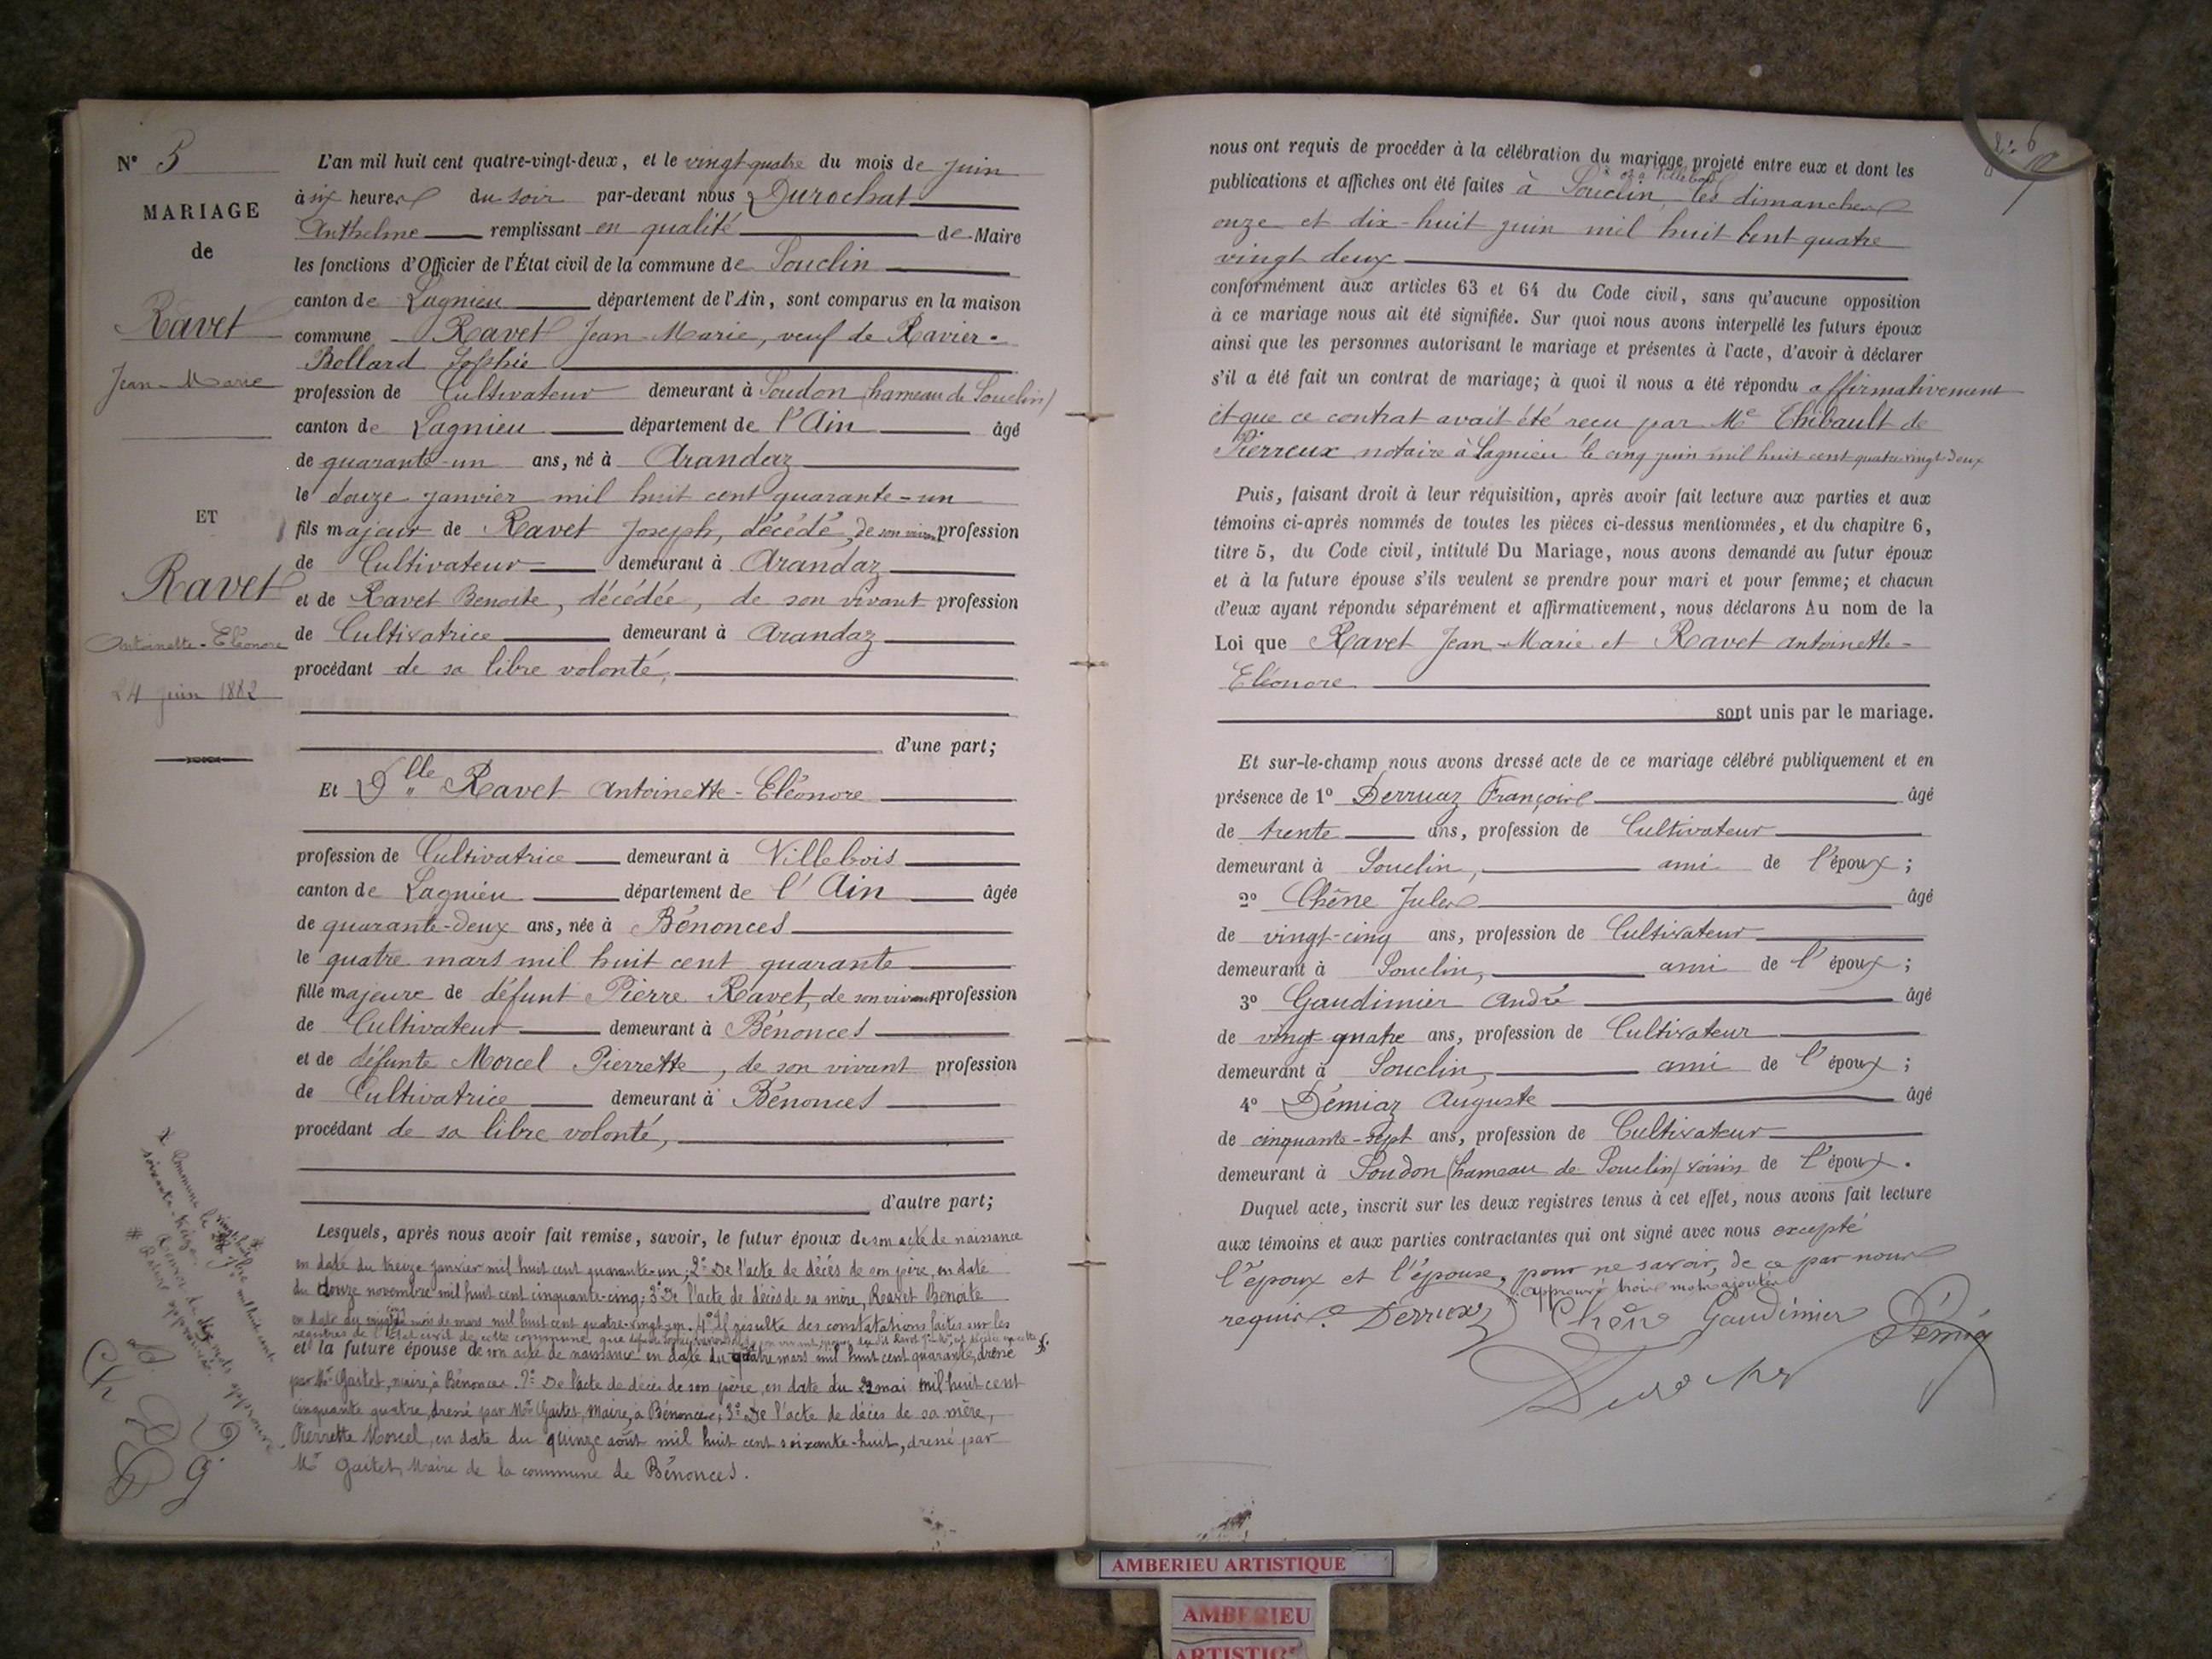 N° 5
MARIAGE
de
Ravet
Jean-Marie
ET
Ravet
Antoinette-Eléonore
24 juin 1882
L'an mil huit cent quatre-vingt-deux, et le vingt-quatre du mois de juin
à six heures du soir par-devant nous Durochat
Anthelme remplissant en qualité de Maire
les fonctions d'Officier de l'État civil de la commune de Souclin
canton de Lagnieu département de l'Ain, sont comparus en la maison
commune Ravet Jean-Marie, veuf de Ravier-
Bollard Sophie
profession de Cultivateur demeurant à Soudon (hameau de Souclin)
canton de Lagnieu département de l'Ain âgé
de quarante-un ans, né à Arandaz
le douze janvier mil huit cent quarante-un
fils majeur de Ravet Joseph, décédé, de son vivant profession
de Cultivateur demeurant à Arandaz
et de Ravet Benoite, décédée, de son vivant profession
de Cultivatrice demeurant à Arandaz
procédant de sa libre volonté,
d'une part;
Et Dlle Ravet Antoinette-Eléonore
profession de Cultivatrice demeurant à Villebois
canton de Lagnieu département de l'Ain âgée
de quarante-deux ans, née à Bénonces
le quatre mars mil huit cent quarante
fille majeure de défunt Pierre Ravet, de son vivant profession
de Cultivateur demeurant à Bénonces
et de défunte Morcel Pierrette, de son vivant profession
de Cultivatrice demeurant à Bénonces
procédant de sa libre volonté,
d'autre part;
Lesquels, après nous avoir fait remise, savoir, le futur époux de son acte de naissance
en date du treize janvier mil huit cent quarante-un; 2° De l'acte de décès de son père, en date
du douze novembre mil huit cent cinquante-cinq; 3° De l'acte de décès de sa mère, Ravet Benoite
en date du mois de mars mil huit cent quatre-vingt-un. 4° Il résulte des constatations faites sur les
registres de l'état civil de cette commune que
et la future épouse de son acte de naissance en date du quatre mars mil huit cent quarante, dressé
par Mr Gaitet, maire, à Bénonces. 2° De l'acte de décès de son père, en date du 22 mai mil huit cent
cinquante quatre, dressé par Mr Gaitet, Maire, à Bénonces; 3° De l'acte de décès de sa mère,
Pierrette Morcel, en date du quinze août mil huit cent soixante-huit, dressé par
Mr Gaitet, Maire de la commune de Bénonces.
commune le mil huit cent
soixante-treize
D G
nous ont requis de procéder à la célébration du mariage projeté entre eux et dont les
et à Villebois
publications et affiches ont été faites à Souclin, les dimanches
onze et dix-huit juin mil huit cent quatre
vingt deux
conformément aux articles 63 et 64 du Code civil, sans qu'aucune opposition
à ce mariage nous ait été signifiée. Sur quoi nous avons interpellé les futurs époux
ainsi que les personnes autorisant le mariage et présentes à l'acte, d'avoir à déclarer
s'il a été fait un contrat de mariage; à quoi il nous a été répondu affirmativement
et que ce contrat avait été reçu par Me Thibault de
Pierreux notaire à Lagnieu le cinq juin mil huit cent quatre vingt deux
Puis, faisant droit à leur réquisition, après avoir fait lecture aux parties et aux
témoins ci-après nommés de toutes les pièces ci-dessus mentionnées, et du chapitre 6,
titre 5, du Code civil, intitulé Du Mariage, nous avons demandé au futur époux
et à la future épouse s'ils veulent se prendre pour mari et pour femme; et chacun
d'eux ayant répondu séparément et affirmativement, nous déclarons Au nom de la
Loi que Ravet Jean-Marie et Ravet Antoinette-
Eléonore
sont unis par le mariage.
Et sur-le-champ nous avons dressé acte de ce mariage célébré publiquement et en
présence de 1° Derruaz François âgé
de trente ans, profession de Cultivateur
demeurant à Souclin, ami de l'époux;
2° Chêne Jules âgé
de vingt-cinq ans, profession de Cultivateur
demeurant à Souclin, ami de l'époux;
3° Gaudimier André âgé
de vingt quatre ans, profession de Cultivateur
demeurant à Souclin, ami de l'époux;
4° Démiaz Auguste âgé
de cinquante-sept ans, profession de Cultivateur
demeurant à Soudon (hameau de Souclin) voisin de l'époux.
Duquel acte, inscrit sur les deux registres tenus à cet effet, nous avons fait lecture
aux témoins et aux parties contractantes qui ont signé avec nous excepté
l'époux et l'épouse, pour ne savoir, de ce par nous
approuvé trois mots ajoutés
requis. Derruaz Chêne Gaudimier Démiaz
Durochat
AMBERIEU ARTISTIQUE
AMBERIEU
ARTISTIQUE